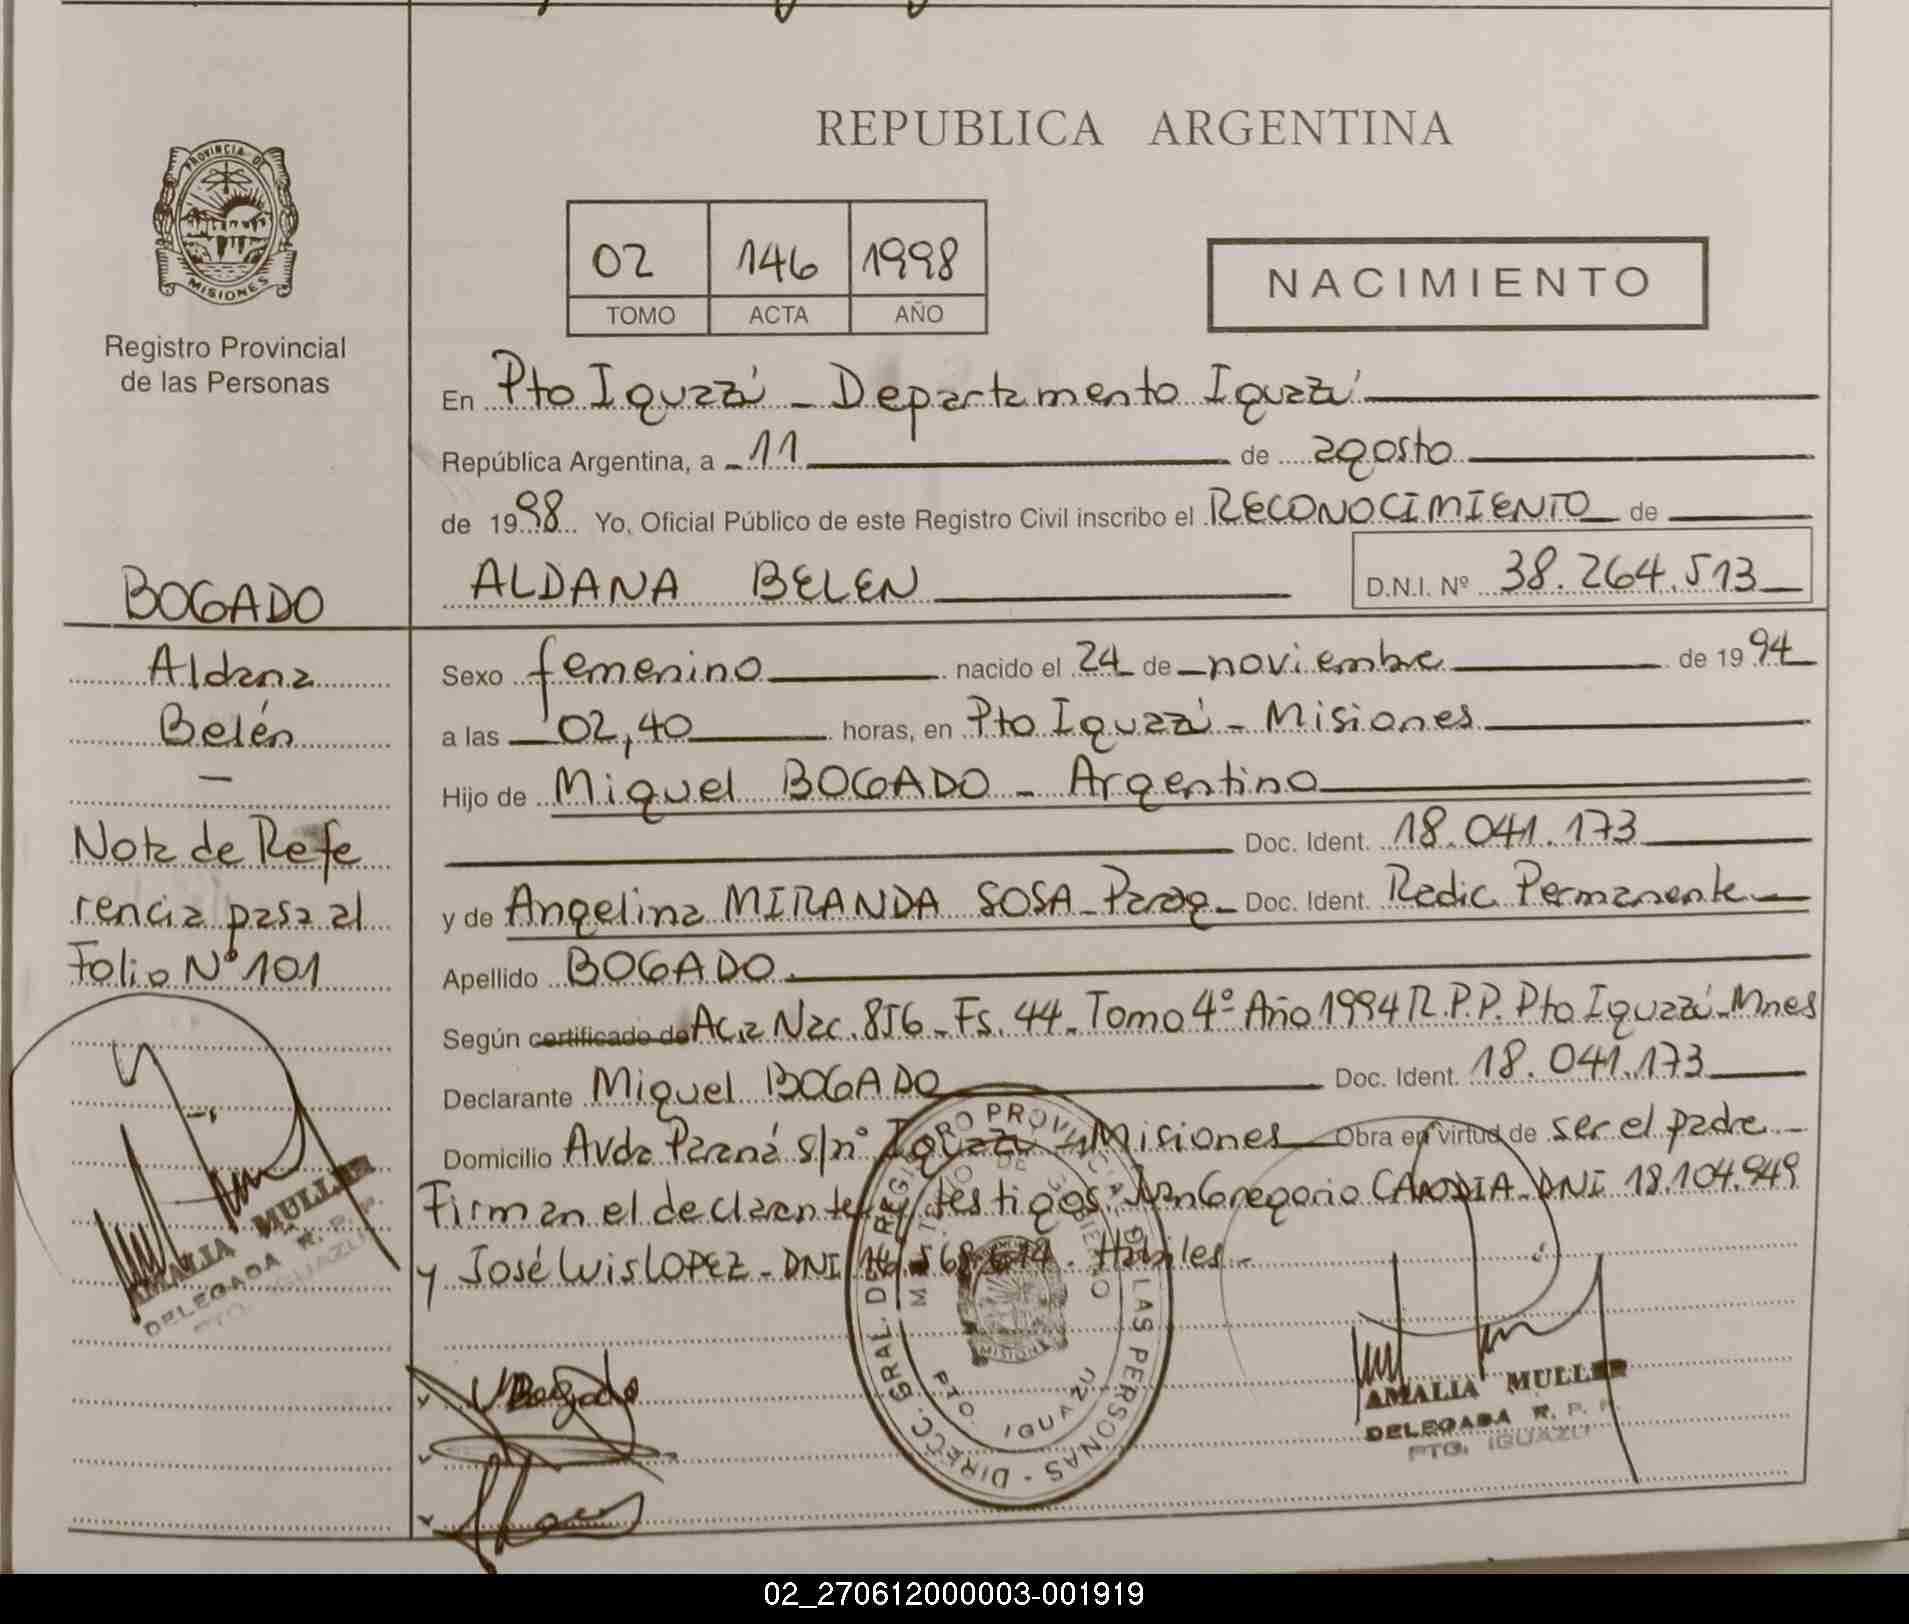 REPUBLICA ARGENTINA
PROVINCIA DE
MISIONES
Registro Provincial
de las Personas
02 146 1998
TOMO ACTA AÑO
NACIMIENTO
En Pto Iguazú - Departamento Iguazú
República Argentina, a 11 de agosto
de 1998 Yo, Oficial Público de este Registro Civil inscribo el RECONOCIMIENTO de
ALDANA BELEN D.N.I. Nº 38.264.513
BOGADO
Aldana
Belén
Nota de Refe
rencia pasa al
Folio Nº 101
AMALIA MULLER
DELEGADA R. P. P.
PTO. IGUAZU
Sexo femenino nacido el 24 de noviembre de 1994
a las 02,40 horas, en Pto Iguazú - Misiones
Hijo de Miguel BOGADO - Argentino
Doc. Ident. 18.041.173
y de Angelina MIRANDA SOSA - Parag - Doc. Ident. Radic. Permanente
Apellido BOGADO
Según certificado de Acta Nac. 856 - Fs. 44 - Tomo 4º Año 1994 R.P.P. Pto Iguazú - Mnes
Declarante Miguel BOGADO Doc. Ident. 18.041.173
Domicilio Avda Paraná s/nº Iguazú - Misiones Obra en virtud de ser el padre -
Firman el declarante y testigos Gregorio DNI 18.104.949
y José Luis LOPEZ - DNI Hábiles -
Bogado
DIRECC. GRAL. DE REGISTRO PROVINCIAL DE LAS PERSONAS
MISIONES
PTO. IGUAZU
AMALIA MULLER
DELEGADA R. P. P.
PTO. IGUAZU
02_270612000003-001919